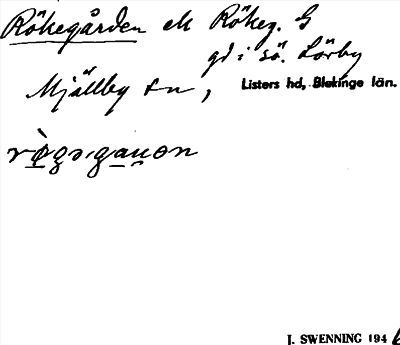 Rökegården el Rökeg. G
gd i sö. Lörby
Mjällby sn, Listers hd, Blekinge län.
J. SWENNING 194